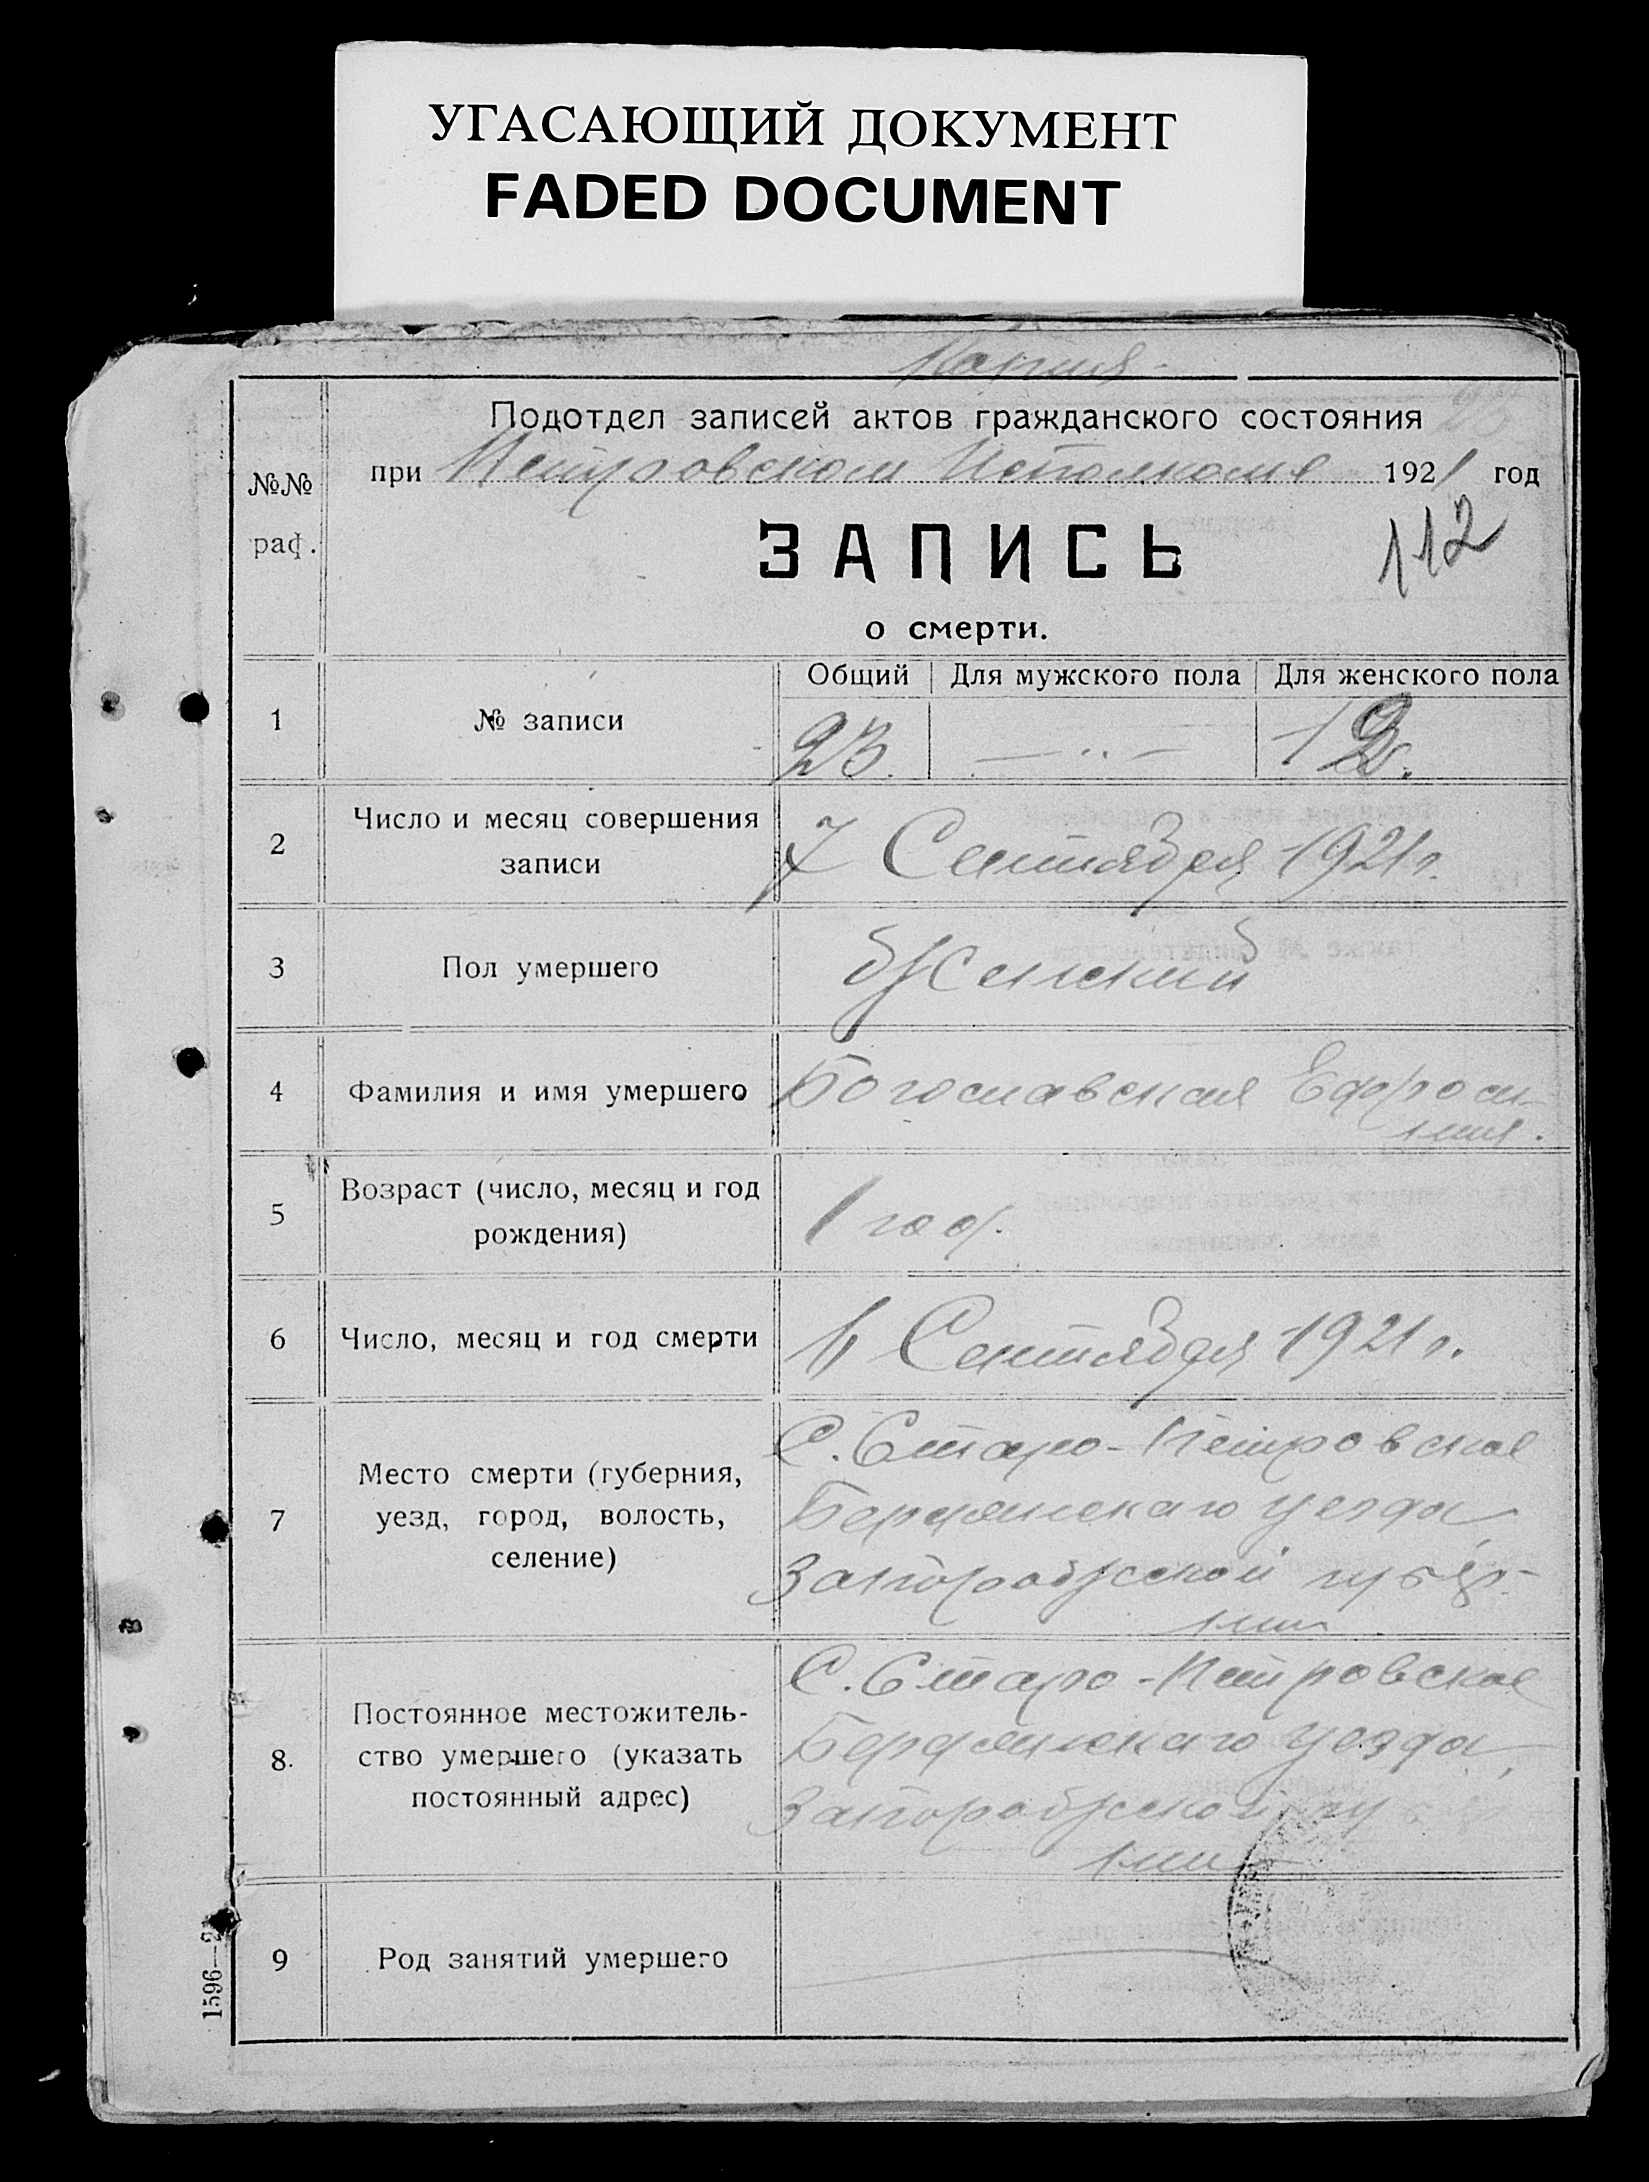 УГАСАЮЩИЙ ДОКУМЕНТ
FADED DOCUMENT
Копия
№№ раф.
Подотдел записей актов гражданского состояния
при Петровском Исполкоме 1921 год
112
ЗАПИСЬ
о смерти.
Общий Для мужского пола Для женского пола
1 № записи 23 — 12.
2 Число и месяц совершения
записи
7 Сентября 1921 г.
3 Пол умершего Женский
4 Фамилия и имя умершего Богославская Ефроси-
ния.
5 Возраст (число, месяц и год
рождения)
1 год.
6 Число, месяц и год смерти 6 Сентября 1921 г.
7 Место смерти (губерния,
уезд, город, волость,
селение)
С. Старо-Петровское
Бердянскаго уезда
Запорожской губер-
нии
8. Постоянное местожитель-
ство умершего (указать
постоянный адрес)
С. Старо-Петровское
Бердянскаго уезда,
Запорожской губер
нии
9 Род занятий умершего
1596—2